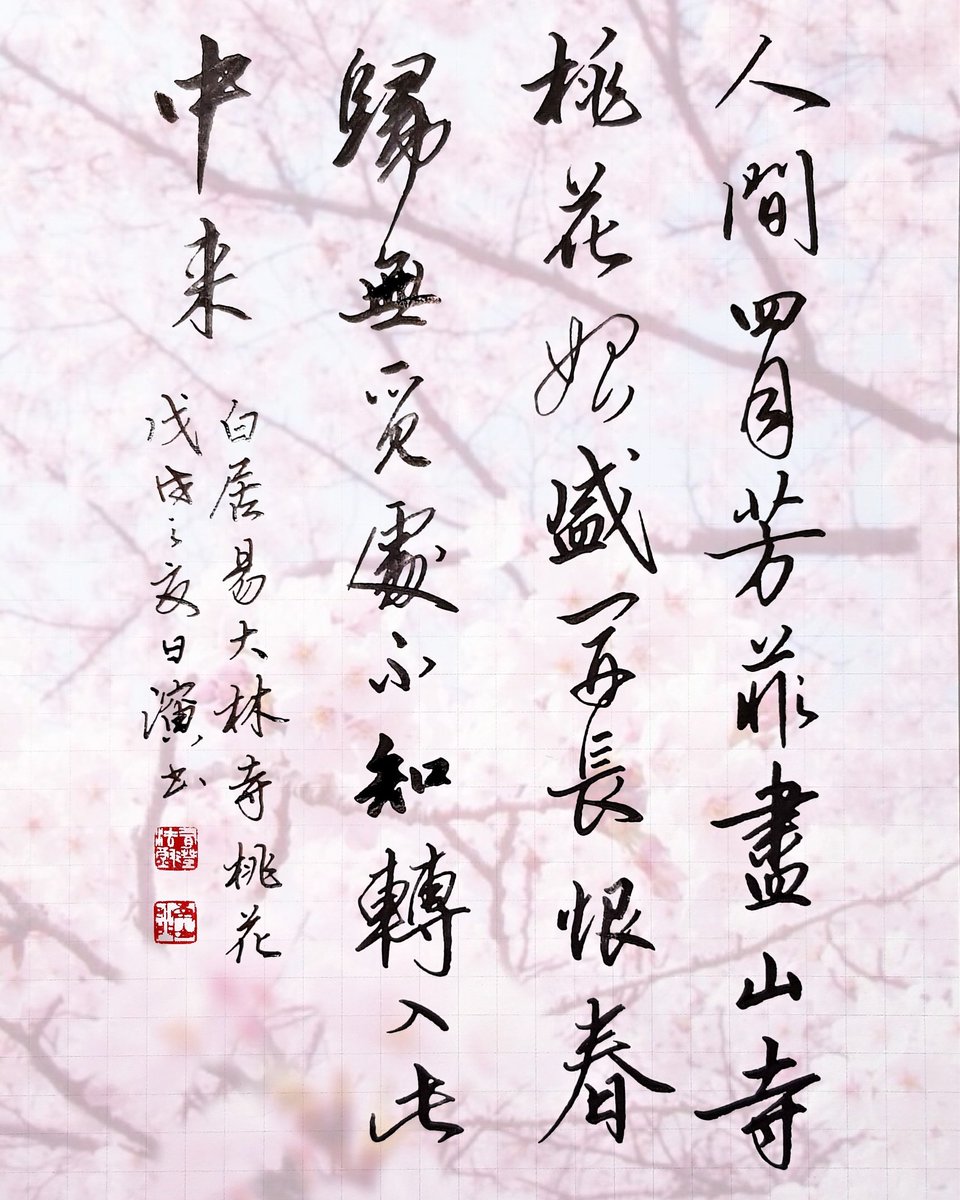 人間四月芳菲盡山寺
桃花始盛開長恨春
歸無覓處不知轉入此
中来
白居易大林寺桃花
戊戌之夏日演書